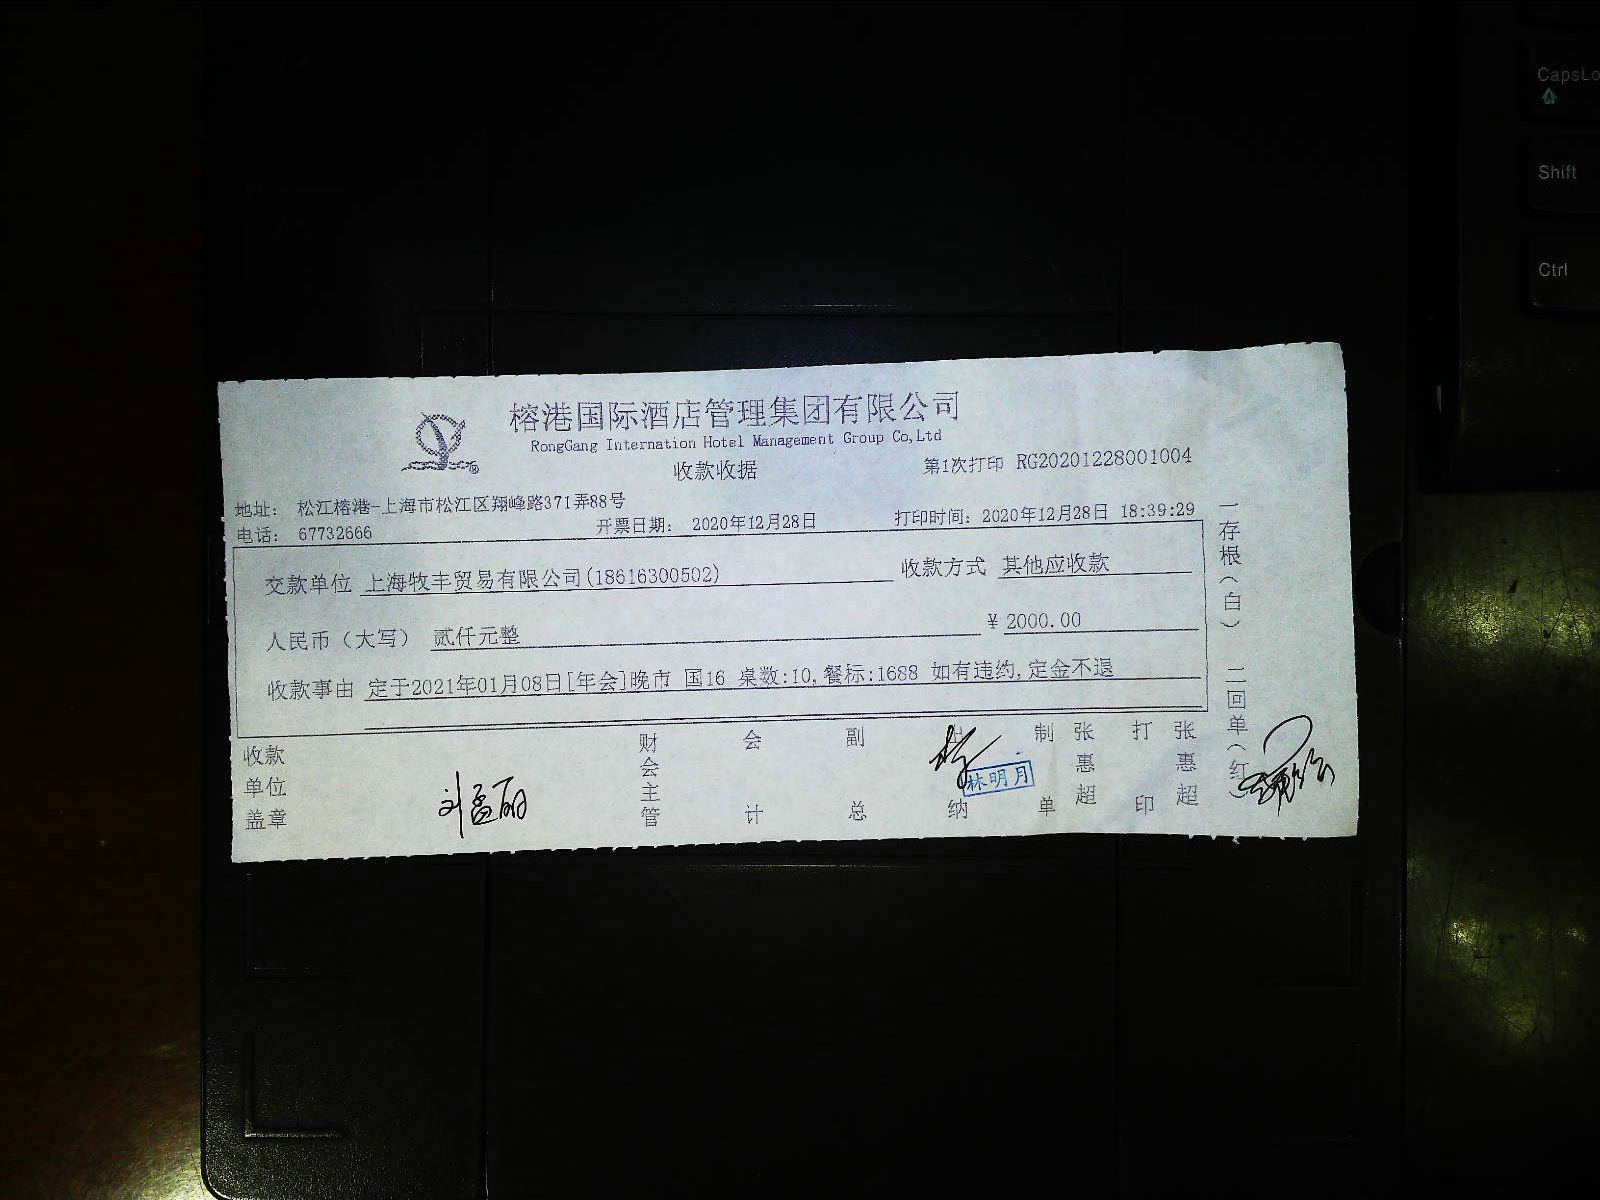 榕港国际酒店管理集团有限公司
RongGang Internation Hotel Management Group Co,Ltd
收款收据
第1次打印 RG20201228001004
地址： 松江榕港-上海市松江区翔峰路371弄88号
电话： 67732666
开票日期： 2020年12月28日
打印时间：2020年12月28日 18:39:29
交款单位 上海牧丰贸易有限公司(18616300502)
收款方式 其他应收款
人民币（大写） 贰仟元整
¥ 2000.00
收款事由 定于2021年01月08日[年会]晚市 国16 桌数:10,餐标:1688 如有违约,定金不退
收款单位盖章
刘孟丽
财会主管
会计
副总
出纳
林明月
制单
张惠超
打印
张惠超
一存根（白） 二回单（红）
CapsLo
Shift
Ctrl